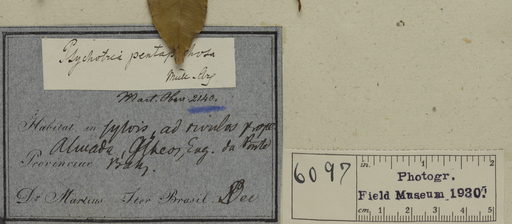 Psychotria
Müll. Arg.
Mart. Obs. 2140.
Habitat in sylvis, ad rivulos prope
Almada, Ilheos, Eng. da Ponte
Provinciae Bah.
Dr Martius Iter Brasil. Dec
6097
in. 1 2
Photogr.
Field Museum 1930
cm 1 2 3 4 5